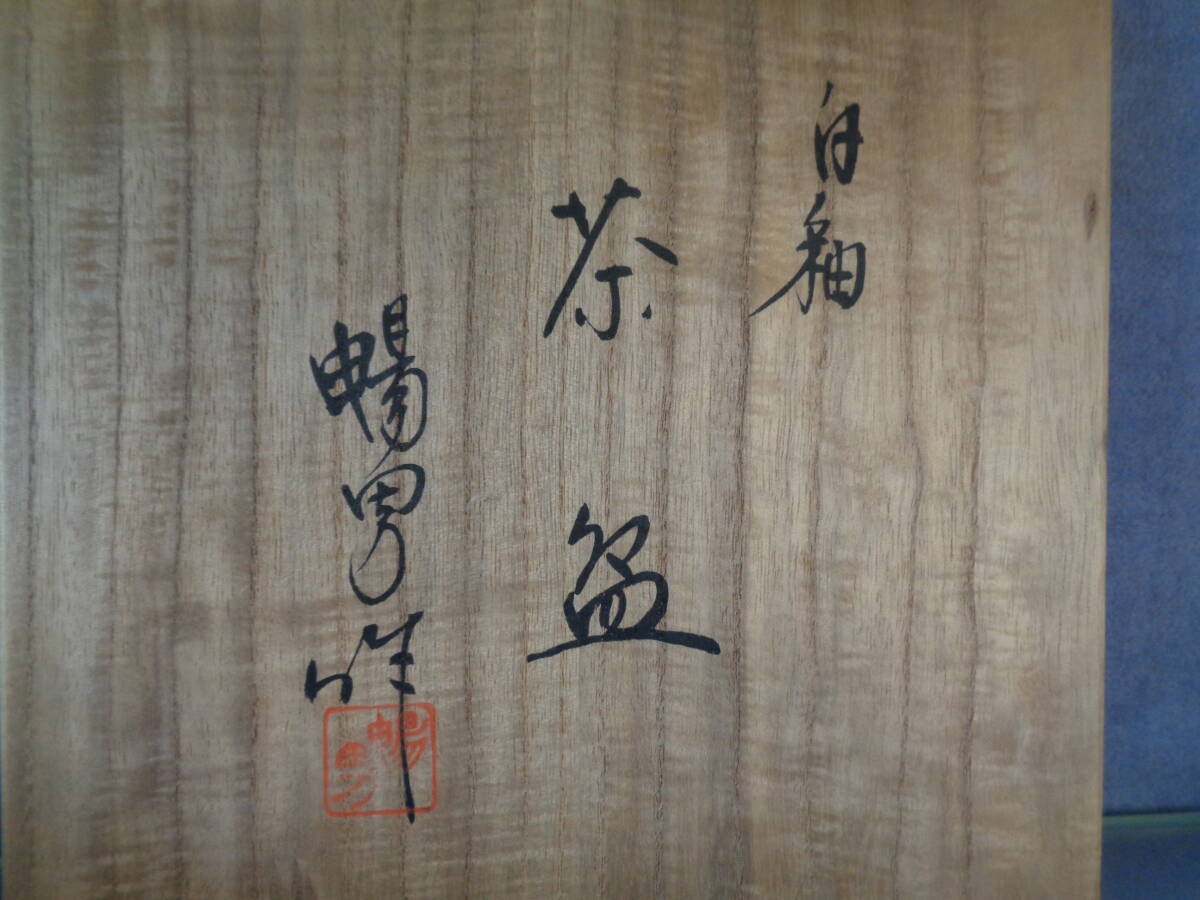 白釉
茶盌
暢男作
暢男